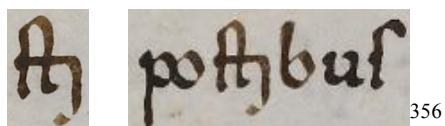 ſti poſtibuſ 356